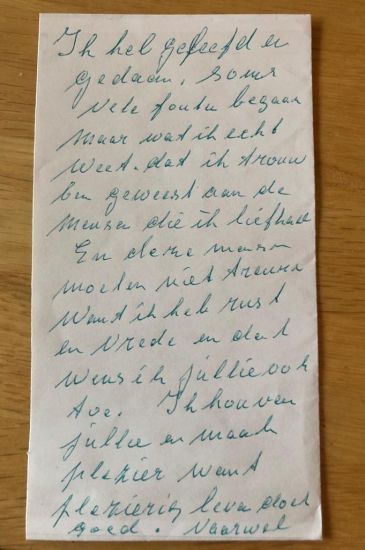 Ik heb geleefd en
gedaan, soms
vele fouten begaan
maar wat ik echt
weet. dat ik trouw
ben geweest aan de
mensen die ik liefhad
En deze mensen
moeten niet treuren
Want ik heb rust
en vrede en dat
wens ik jullie ook
toe. Ik hou van
jullie en maak
plezier want
plezierig leven doet
goed. Vaarwel